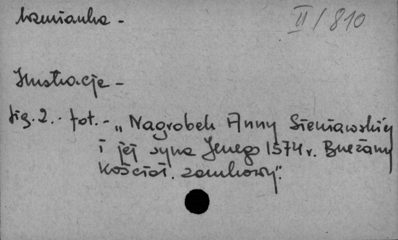 kamianka - II/810
Ilustracje -
fig. 2. - fot. - „Nagrobek Anny Sieniawskiej
i jej syna Jerzego 1574 r. Brzeżany
kościół. zamkowy".